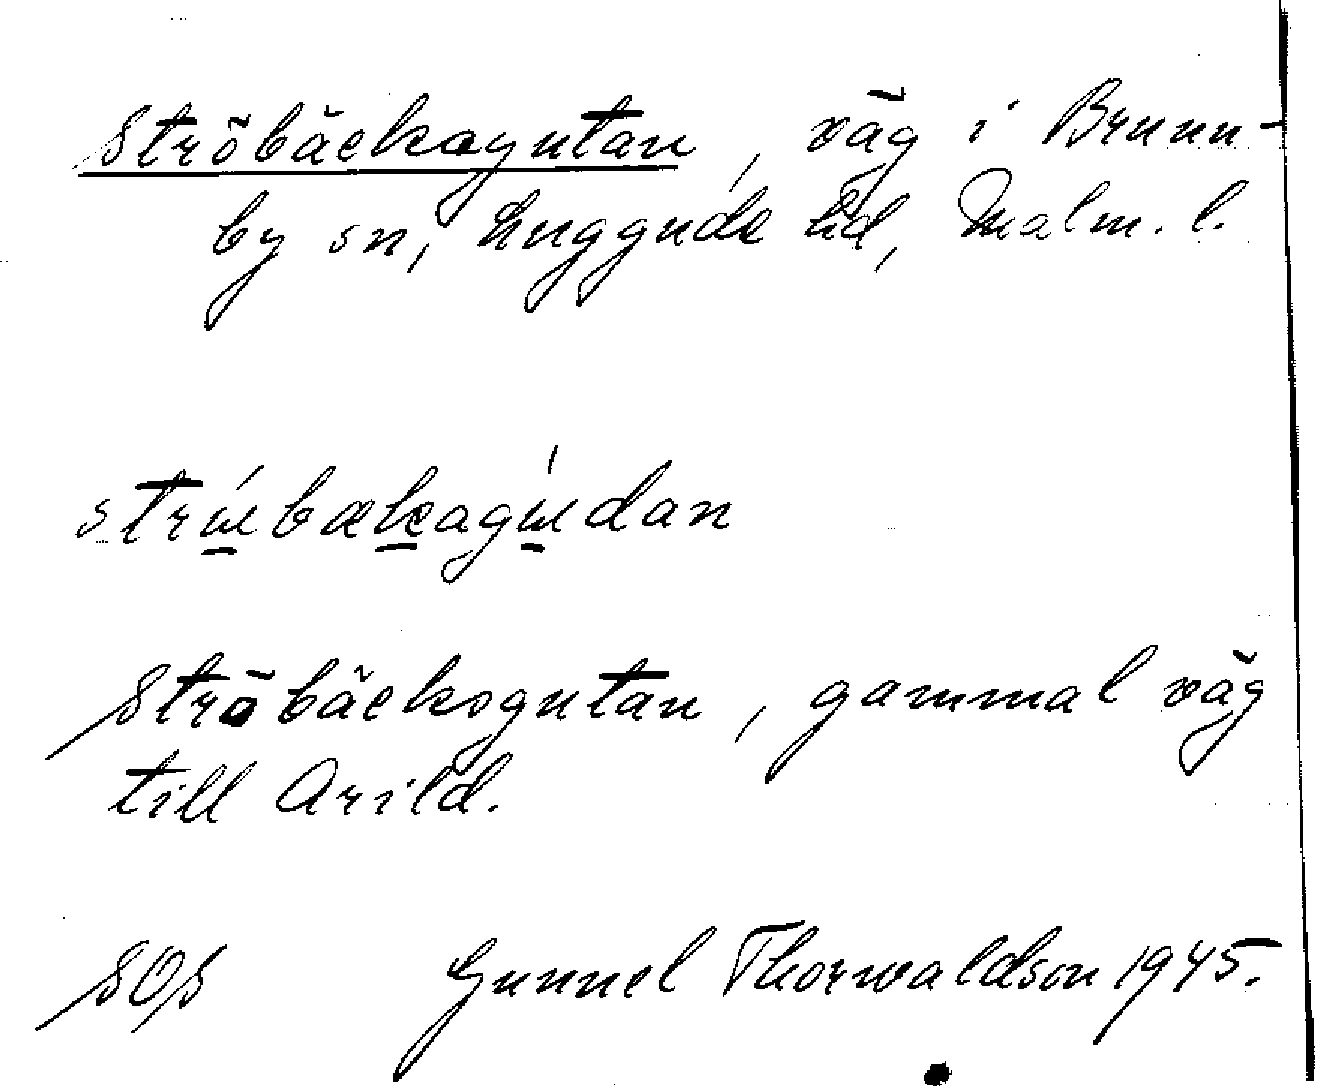 Ströbäcksgutan, väg i Brunn-
by sn, Luggude hd, Malm. l.
strɯ́bækagɯ́dan
Ströbäcksgutan, gammal väg
till Arild.
SOS Gunnel Thorwaldson 1945.